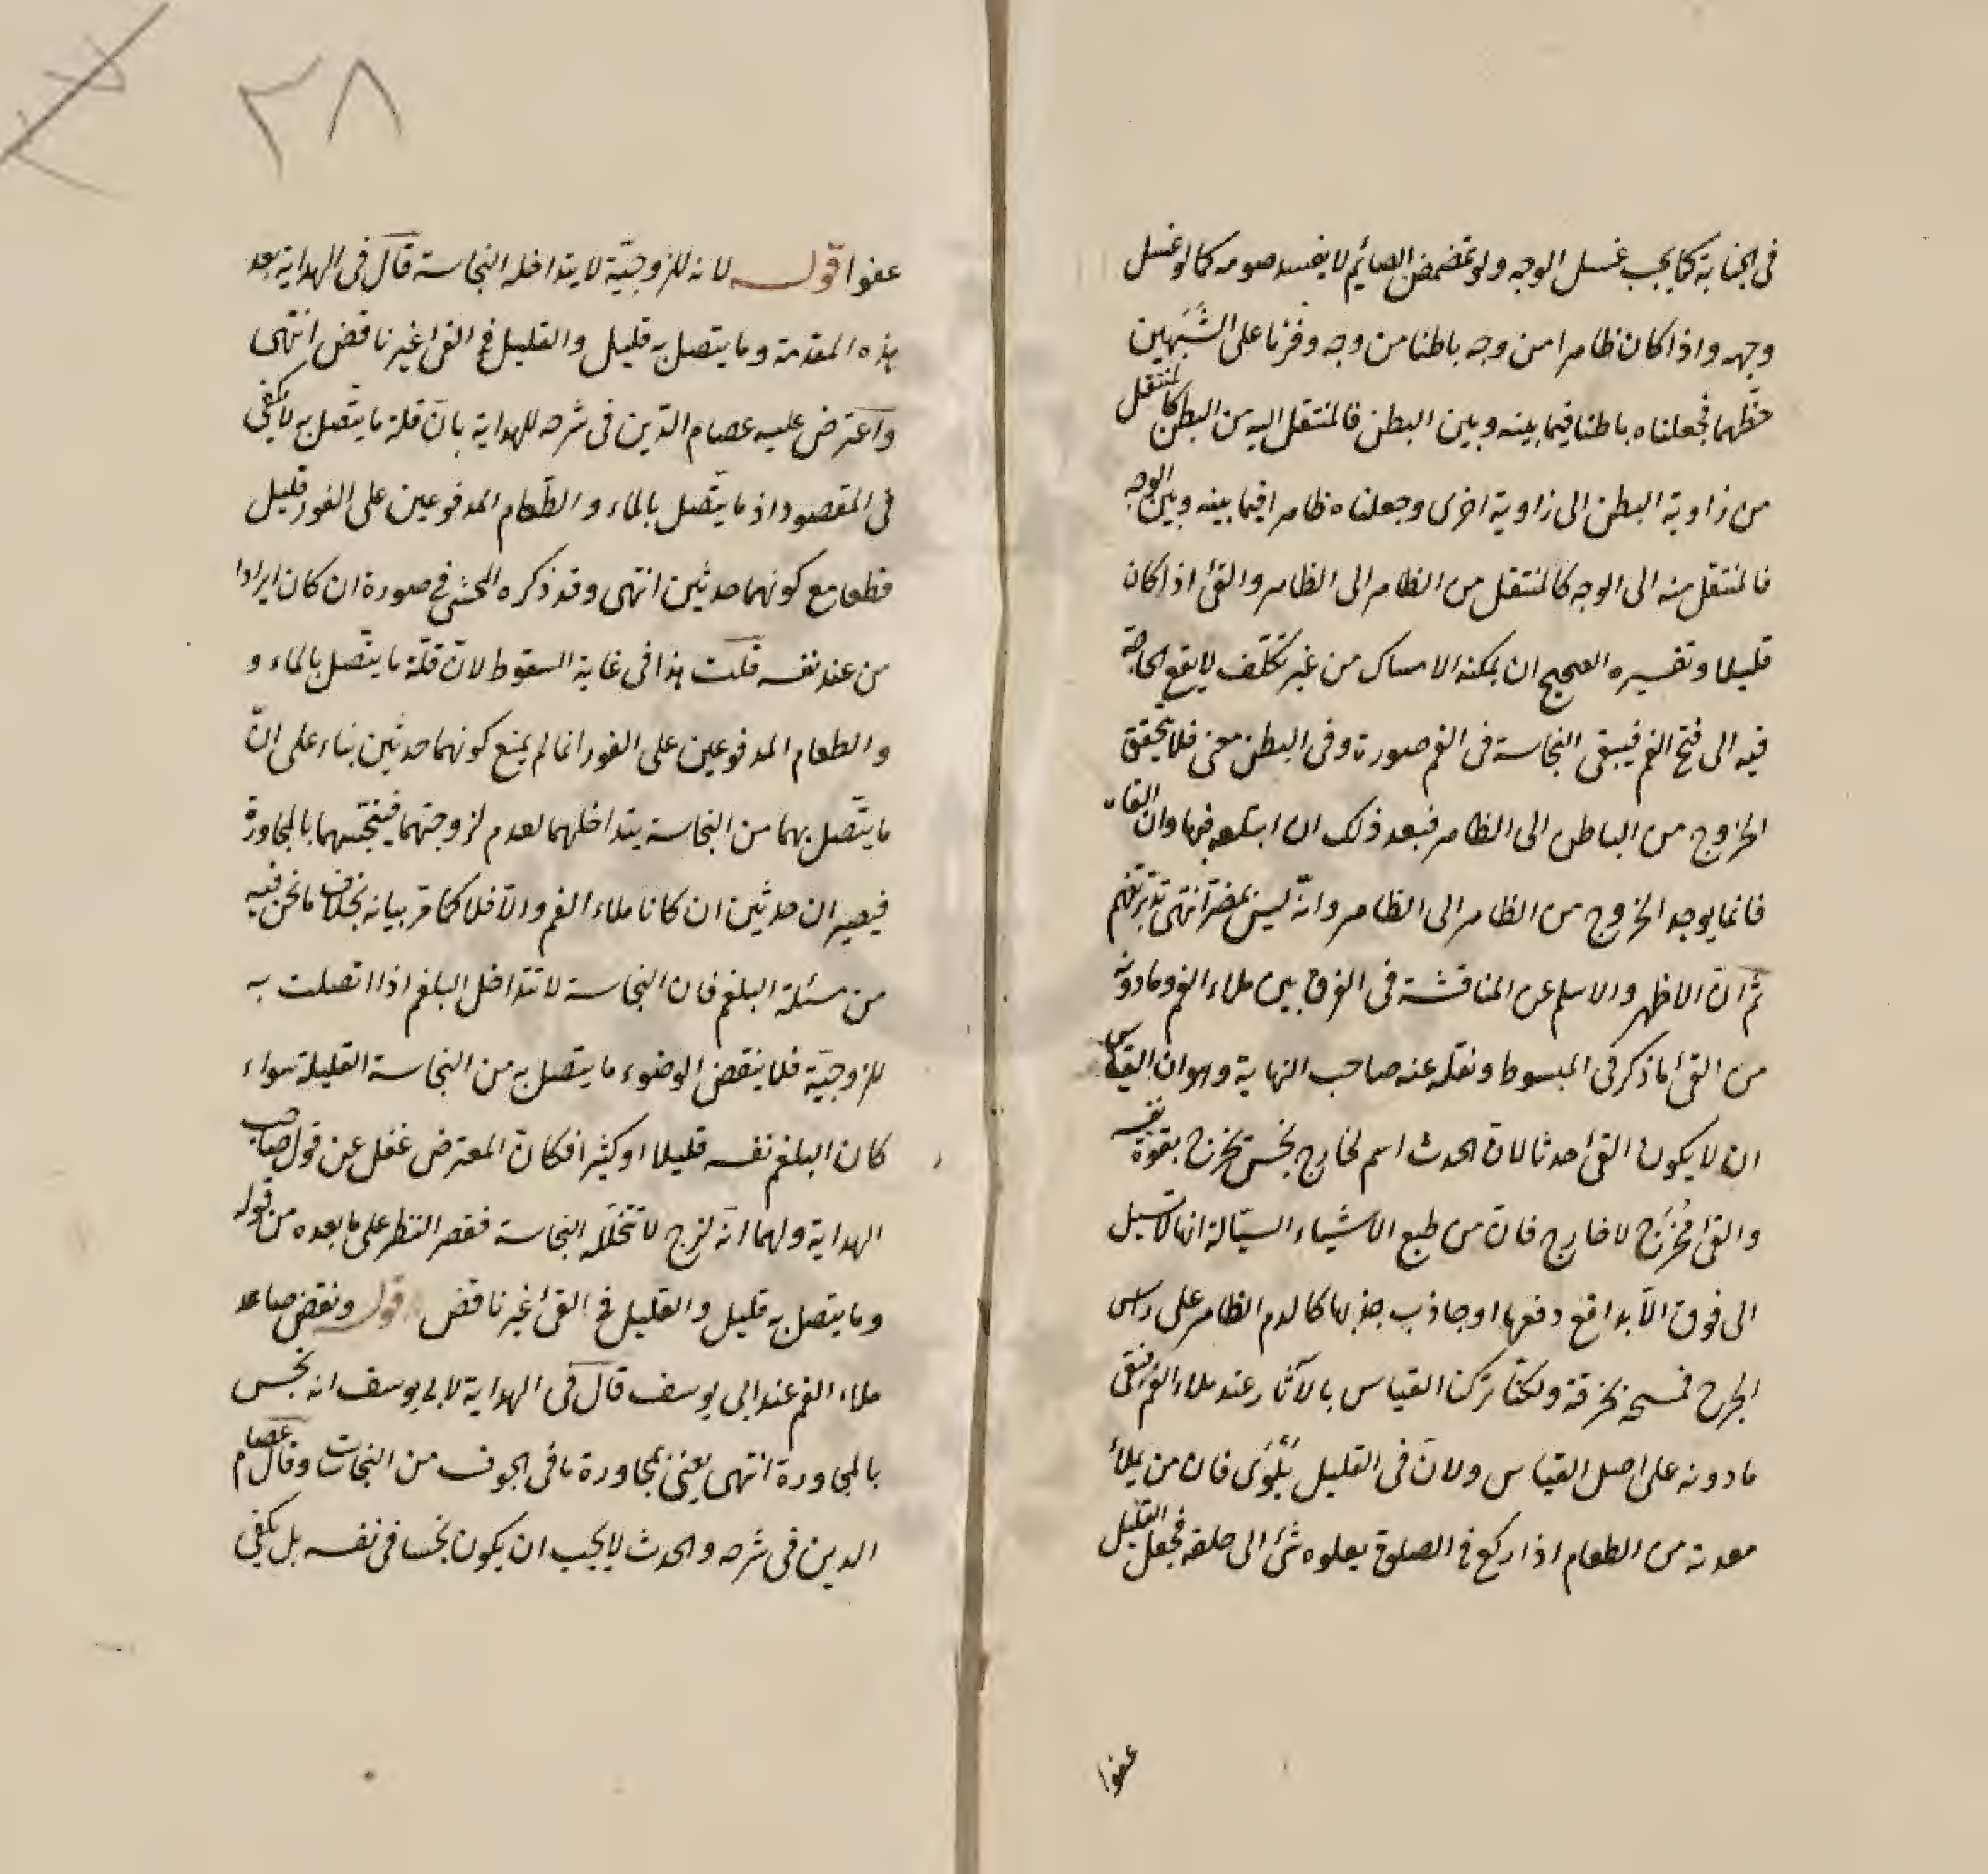 في الجنابة كما يجب غسل الوجه ولو تمضمض الصائم لا يفسد صومه كما لو غسل
وجهه واذا كان ظاهرا من وجه باطنا من وجه وفرنا على الشبهين
حظهما فجعلناه باطنا فيما بينه وبين البطن فالمنتقل اليه من البطن كالمنتقل
من زاوية البطن الى زاوية اخرى وجعلناه ظاهرا فيما بينه وبين الوجه
فالمنتقل منه الى الوجه كالمنتقل من الظاهر الى الظاهر والقئ اذا كان
قليلا وتفسيره الصحيح ان يمكنه الامساك من غير تكلف لا يقع الحاجة
فيه الى فتح الفم فيبقى النجاسة في الفم صورة وفي البطن معنى فلا يتحقق
الخروج من الباطن الى الظاهر فبعد ذلك ان ابتلعه فبها وان القاه
فانما يوجد الخروج من الظاهر الى الظاهر وانه ليس بمضر انتهى تدبر تفهم
ثم ان الاظهر والاسلم عن المناقشة في الفرق بين ملاء الفم وما دونه
من القئ ما ذكر في المبسوط ونقله عنه صاحب النهاية وهو ان القياس
ان لا يكون القئ حدثا لان الحدث اسم لخارج نجس يخرج بقوة نفسه
والقئ مُخْرَج لا خارج فان من طبع الاشياء السيّالة انها لا تسيل
الى فوق الّا بدافع دفعها او جاذب جذبها كالدم الظاهر على راس
الجرح فمسحه بخرقة ولكنا تركنا القياس بالآثار عند ملاء الفم فبقى
ما دونه على اصل القياس ولان في القليل بَلْوَى فان من يملأ
معدته من الطعام اذا ركع في الصلوة يعلوه شئ الى حلقه فجعل القليل
عفوا
٣٨
عفوا قوله لانه للزوجيّة لا يتداخله النجاسة قال في الهداية بعد
هذه المقدمة وما يتصل به قليل والقليل في القئ غير ناقض انتهى
واعترض عليه عصام الدّين في شرحه للهداية بان قلة ما يتصل به لا يكفي
في المقصود اذ ما يتّصل بالماء والطّعام المدفوعين على الفور قليل
قطعا مع كونهما حدثين انتهى وقد ذكره المحشي في صورة ان كان ايرادا
من عند نفسه قلت هذا في غاية السقوط لان قلّة ما يتّصل بالماء و
والطعام المدفوعين على الفور انما لم يمنع كونهما حدثين بناء على انّ
ما يتّصل بهما من النجاسة يتداخلهما لعدم لزوجتهما فينجسهما بالمجاورة
فيصيران حدثين ان كانا ملاء الفم والّا فلا كما مر بيانه بخلاف ما نحن فيه
من مسئلة البلغم فان النجاسة لا تتداخل البلغم اذا اتصلت به
للزوجيّة فلا ينقض الوضوء ما يتصل به من النجاسة القليلة سواء
كان البلغم نفسه قليلا او كثيرا فكان المعترض غفل عن قول صاحب
الهداية ولهما انه لزج لا تتخلّله النجاسة فقصر النظر على ما بعده من قوله
وما يتصل به قليل والقليل في القئ غير ناقض قوله ونقض صاعد
ملاء الفم عند ابى يوسف قال في الهداية لابى يوسف انه نجس
بالمجاورة انتهى يعنى بمجاورة ما في الجوف من النجاسات وقال عصام
الدين في شرحه والحدث لا يجب ان يكون نجسا في نفسه بل يكفي